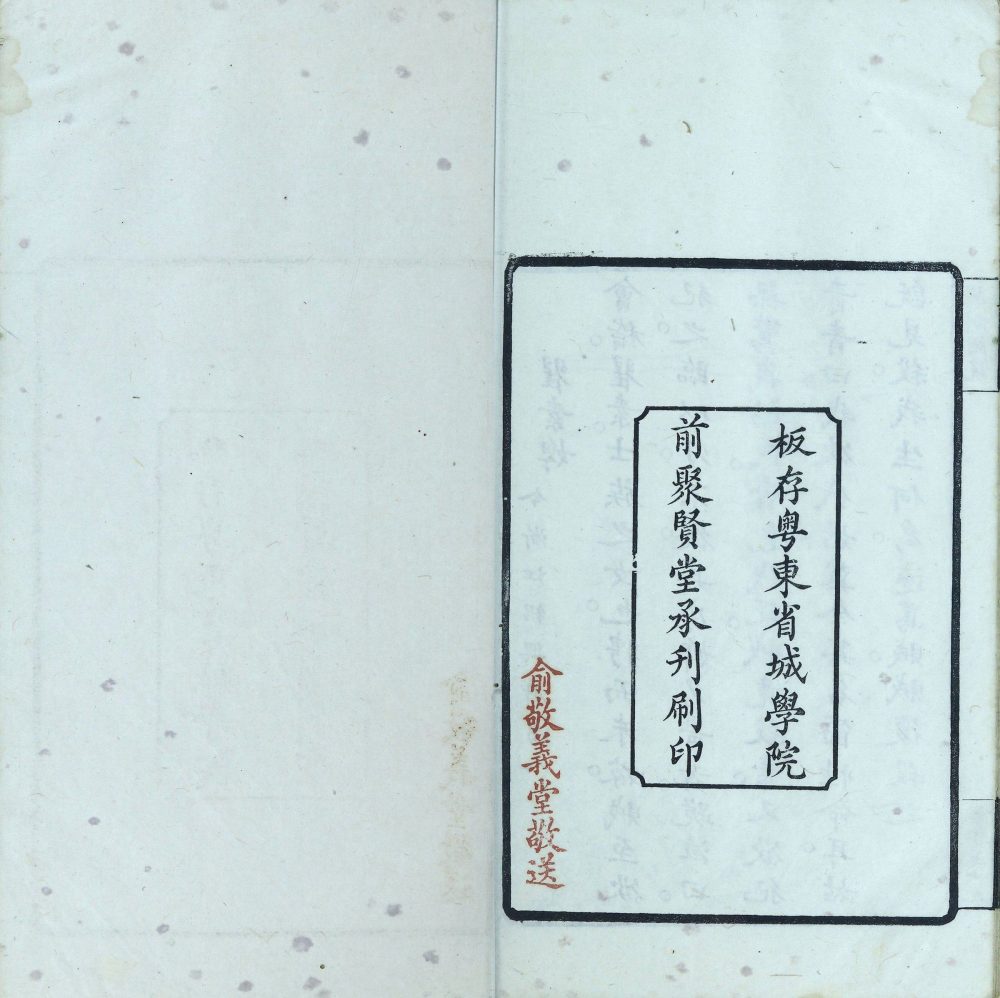 板存粤東省城學院
前聚賢堂承刋刷印
俞敬義堂敬送